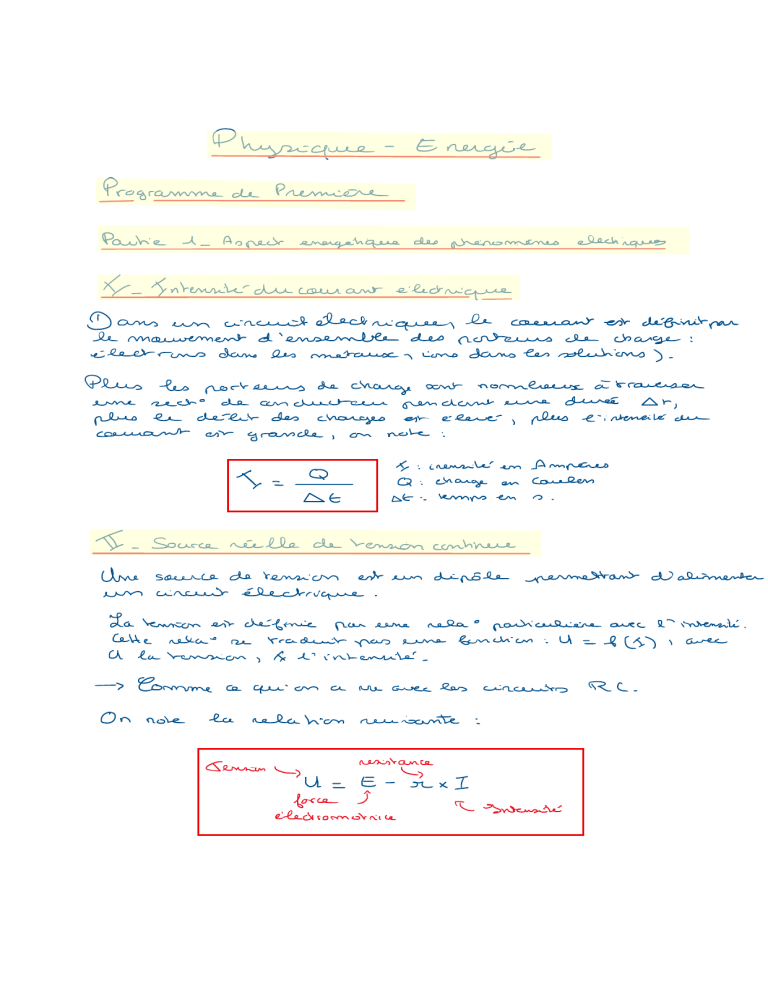 Physique - Energie
Programme de Première
Partie 1 - Aspect energétique des phénomènes electriques
I - Intensité du courant électrique
Dans un circuit électrique, le courant est définit par
le mouvement d'ensemble des porteurs de charge :
électrons dans les métaux, ions dans les solutions).
Plus les porteurs de charge sont nombreux à traverser
une sect° de conducteur pendant une durée Δt,
plus le débit des charges est élevé, plus l'intensité du
courant est grande, on note :
I = Q / Δt
I : intensité en Ampères
Q : charge en Coulon
Δt : temps en s.
II - Source réelle de tension continue
Une source de tension est un dipôle permettant d'alimenter
un circuit électrique.
La tension est définie par une rela° particulière avec l'intensité.
Cette rela° se traduit pas une fonction : U = f(I), avec
U la tension, I l'intensité.
→ Comme ce qu'on a vu avec les circuits RC.
On note la relation suivante :
Tension
resistance
U = E - r × I
force
électromotrice
Intensité